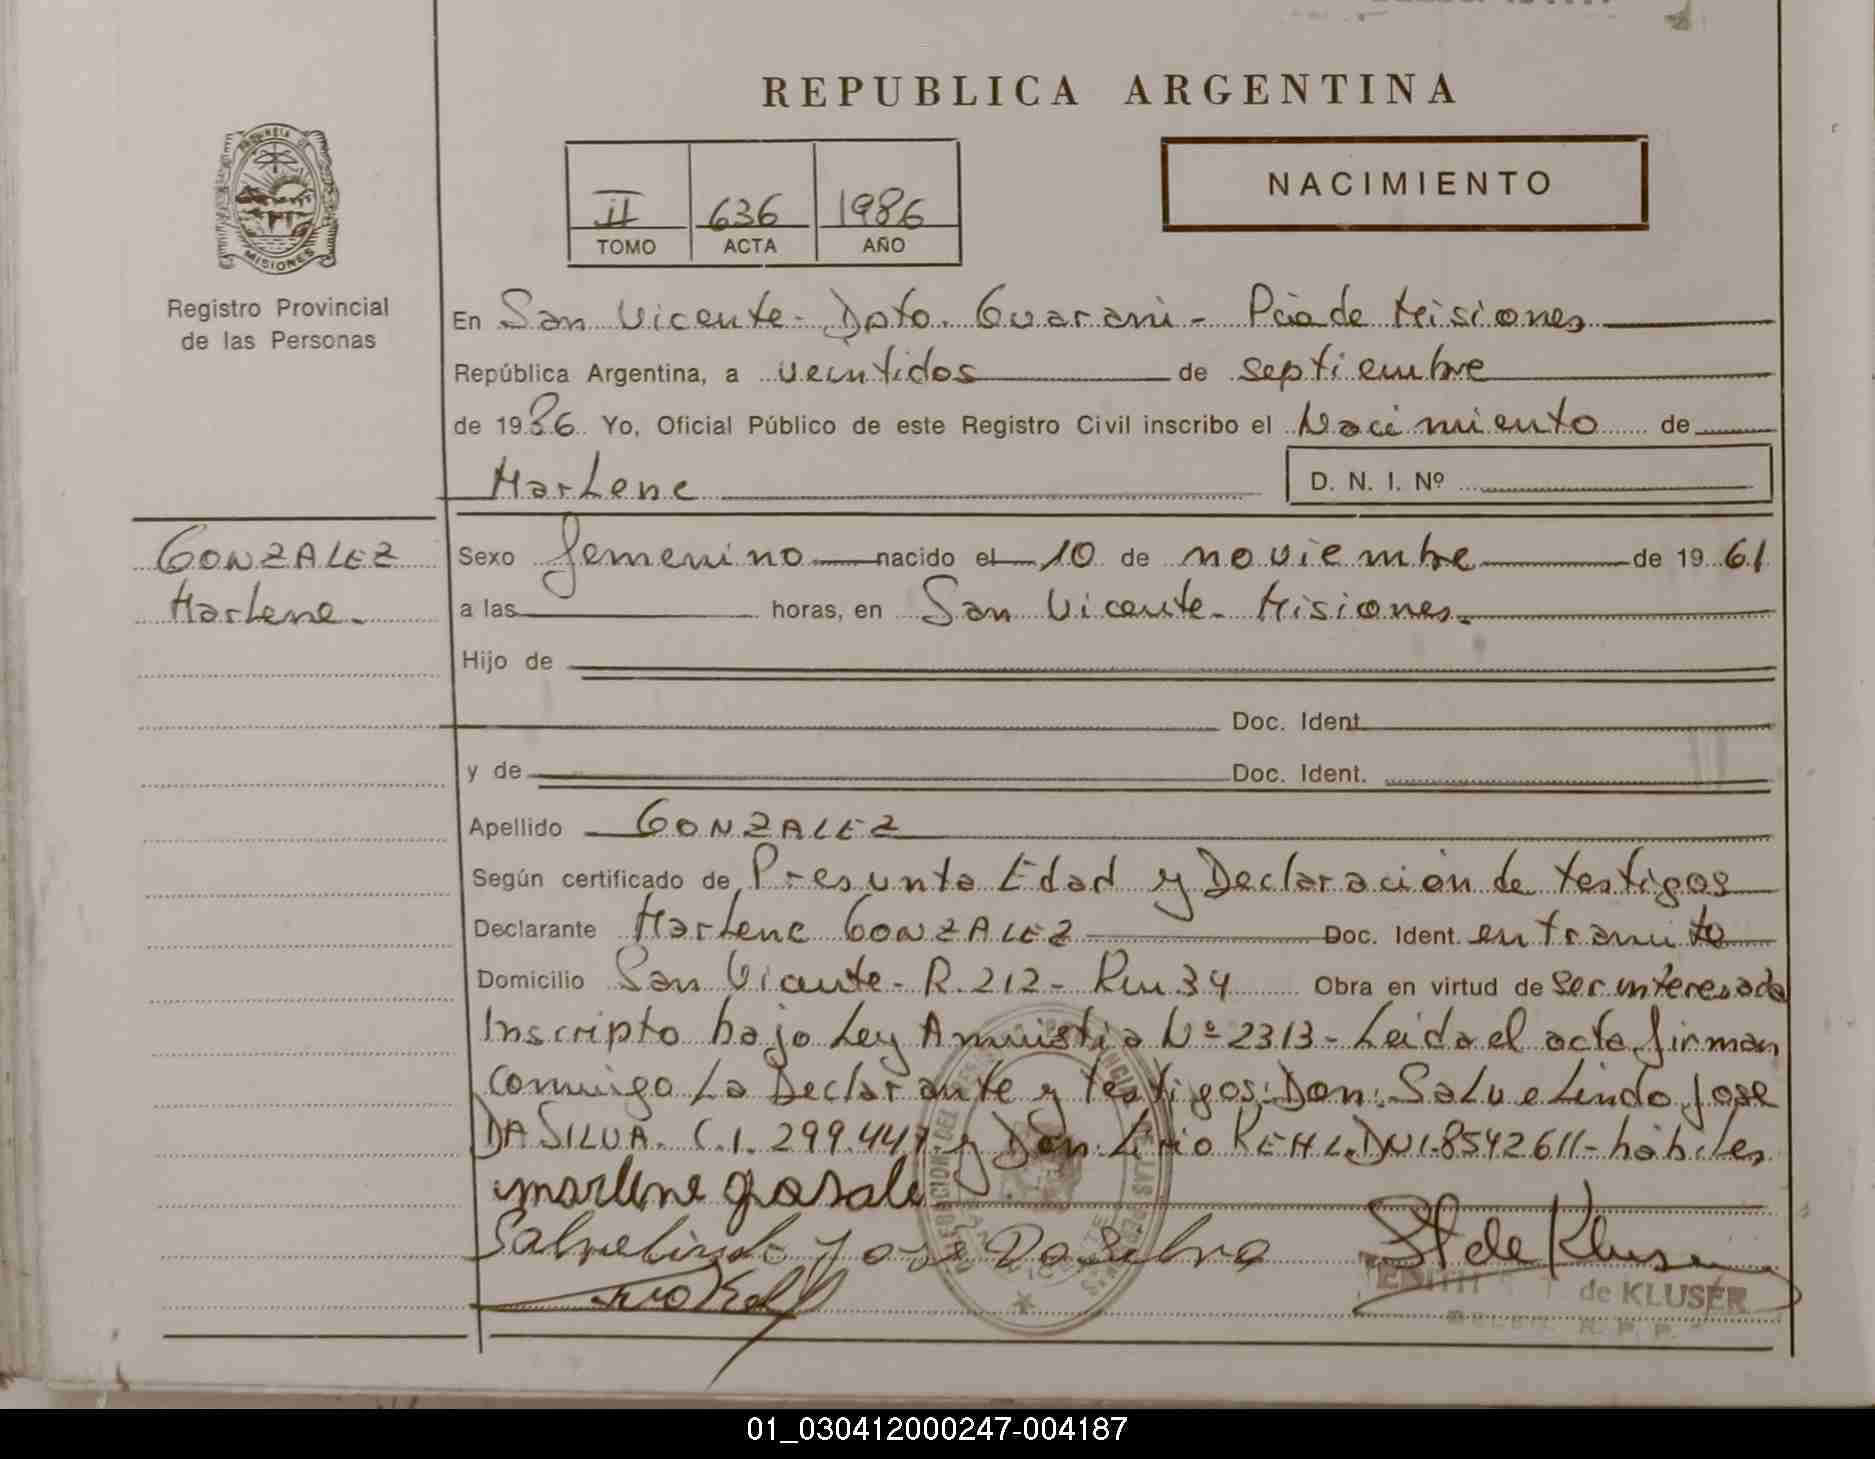 REPUBLICA ARGENTINA
PROVINCIA DE
MISIONES
Registro Provincial
de las Personas
II 636 1986
TOMO ACTA AÑO
NACIMIENTO
En San Vicente - Dpto. Guarani - Pcia de Misiones
República Argentina, a veintidos de septiembre
de 1986 Yo, Oficial Público de este Registro Civil inscribo el Nacimiento de
Marlene D. N. I. Nº
GONZALEZ
Marlene.
Sexo femenino nacido el 10 de noviembre de 1961
a las horas, en San Vicente - Misiones.
Hijo de
Doc. Ident.
y de Doc. Ident.
Apellido GONZALEZ
Según certificado de Presunta Edad y Declaración de testigos
Declarante Marlene GONZALEZ Doc. Ident. en tramite
Domicilio San Vicente - R. 212 - Km 34 Obra en virtud de ser interesada
Inscripto bajo Ley Amnistia Nº 2313 - Leida el acta firman
conmigo La Declarante y testigos: Don: Salvelindo Jose
DA SILVA. C.I. 299.447 y Don Lirio KEHL DNI. 8542611 - hábiles
marlene gosale
Salvelindo Jose Da Silva
St de Kluser
EDITH de KLUSER
R. P. P.
01_030412000247-004187